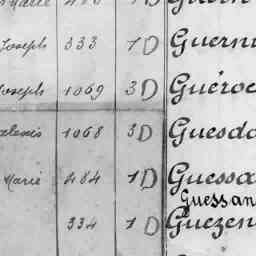 Joseph 333 1D Guern
Joseph 1069 3D Guéroc
alexis 1068 3D Guesdo
Marie 484 1D Guessa
Guessan
334 1D Guezen